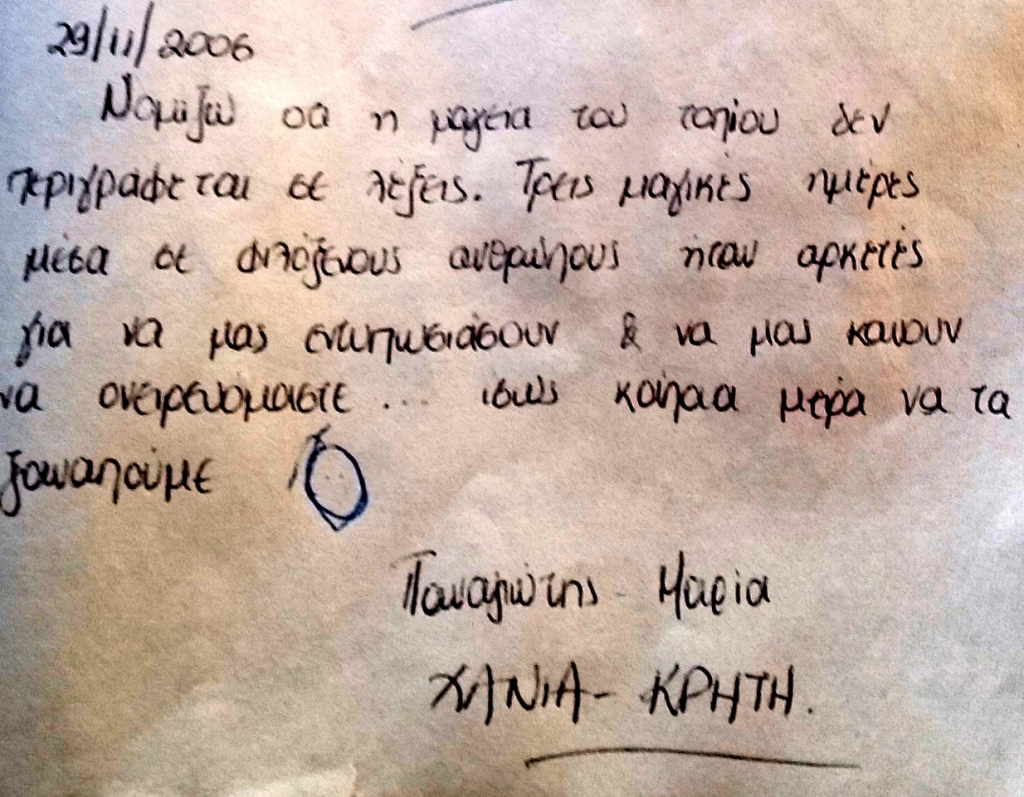 29/11/2006
Νομίζω ότι η μαγεία του τοπίου δεν
περιγράφεται σε λέξεις. Τρεις μαγικές ημέρες
μέσα σε φιλόξενους ανθρώπους ήταν αρκετές
για να μας εντυπωσιάσουν & να μας κάνουν
να ονειρευόμαστε ... ίσως κάποια μέρα να τα
ξαναπούμε
Παναγιώτης - Μαρία
ΧΑΝΙΑ - ΚΡΗΤΗ.